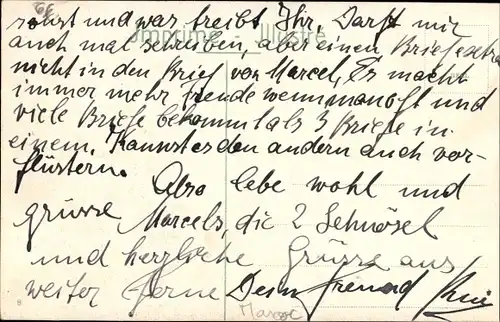 sonst und was treibt Ihr. Darfst mir
Imprimé - Illustré
auch mal schreiben, aber einen Brief extra
nicht in den Brief von Marcel. Es macht
immer mehr Freude wenn man oft und
viele Briefe bekommt als 3 Briefe in
einem. Kannst es den andern auch vor-
flüstern.
Also lebe wohl und
grüsse Marcels, die 2 Schnösel
und herzliche Grüsse aus
weiter Ferne Dein Freund
Marcel
8